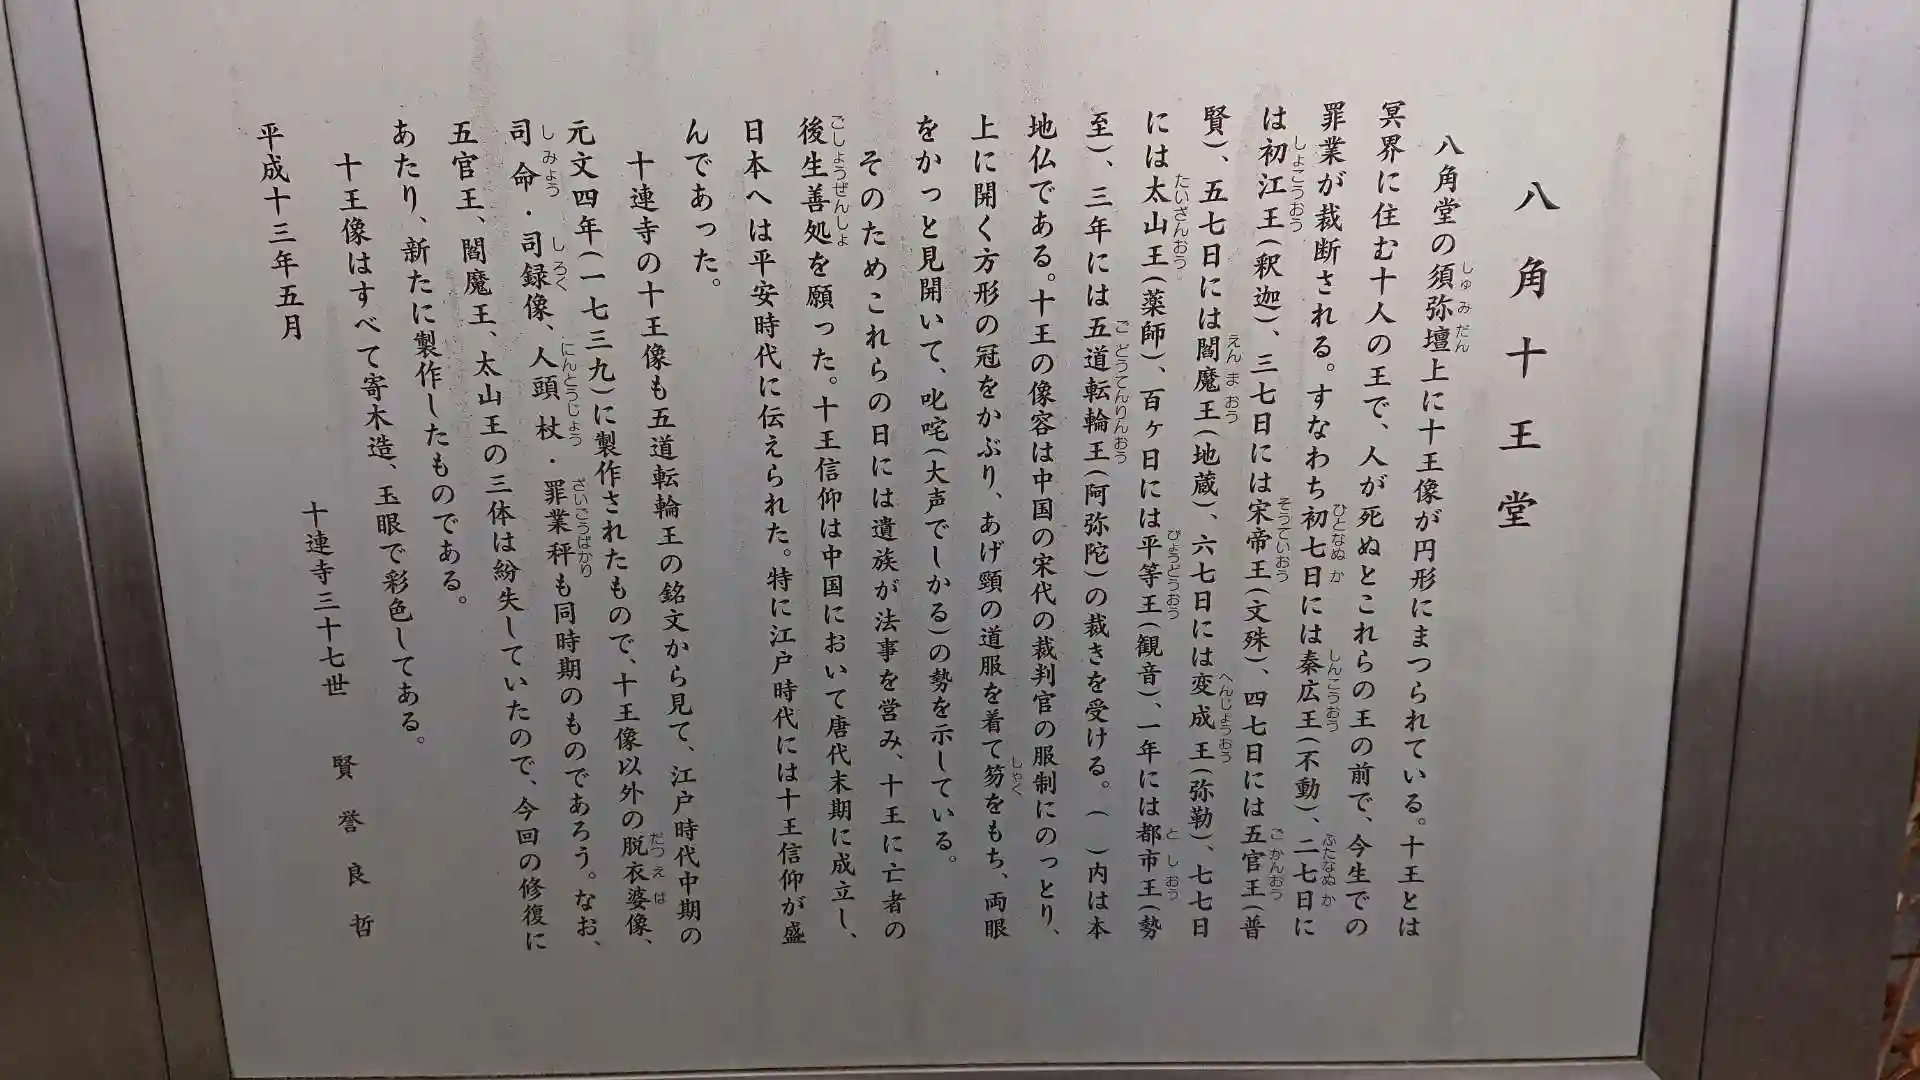 八角十王堂
八角堂の須弥壇上に十王像が円形にまつられている。十王とは
冥界に住む十人の王で、人が死ぬとこれらの王の前で、今生での
罪業が裁断される。すなわち初七日には秦広王(不動)、二七日に
は初江王(釈迦)、三七日には宋帝王(文殊)、四七日には五官王(普
賢)、五七日には閻魔王(地蔵)、六七日には変成王(弥勒)、七七日
には太山王(薬師)、百ヶ日には平等王(観音)、一年には都市王(勢
至)、三年には五道転輪王(阿弥陀)の裁きを受ける。( )内は本
地仏である。十王の像容は中国の宋代の裁判官の服制にのっとり、
上に開く方形の冠をかぶり、あげ頸の道服を着て笏をもち、両眼
をかっと見開いて、叱咤(大声でしかる)の勢を示している。
そのためこれらの日には遺族が法事を営み、十王に亡者の
後生善処を願った。十王信仰は中国において唐代末期に成立し、
日本へは平安時代に伝えられた。特に江戸時代には十王信仰が盛
んであった。
十連寺の十王像も五道転輪王の銘文から見て、江戸時代中期の
元文四年(一七三九)に製作されたもので、十王像以外の脱衣婆像、
司命・司録像、人頭杖・罪業秤も同時期のものであろう。なお、
五官王、閻魔王、太山王の三体は紛失していたので、今回の修復に
あたり、新たに製作したものである。
十王像はすべて寄木造、玉眼で彩色してある。
平成十三年五月
十連寺三十七世 賢誉良哲